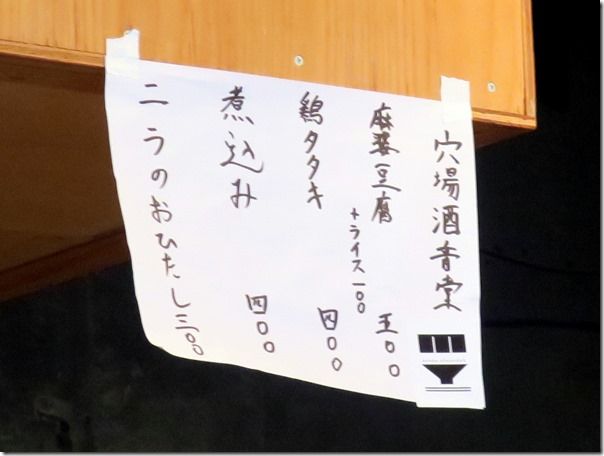 穴場酒青棠
麻婆豆腐 五〇〇
+ライス一〇〇
鶏タタキ 四〇〇
煮込み 四〇〇
ニラのおひたし三〇〇